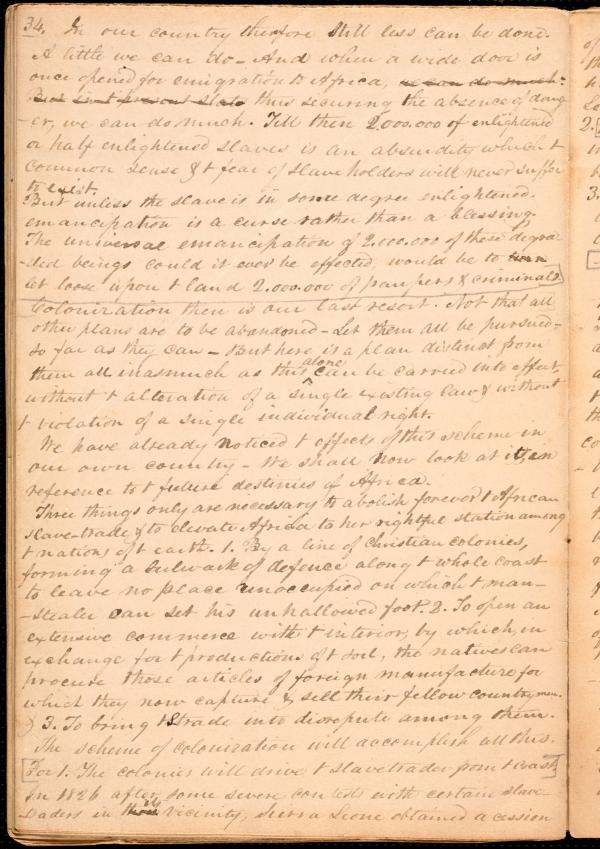 34. In our country therefore still less can be done.
A little we can do - And when a wide door is
once opened for emigration to Africa, we can do much.
But in t present state thus securing the absence of dang-
-er, we can do much. Till then 2,000,000 of enlightened
or half enlightened slaves is an absurdity which t
common sense & t fear of slave holders will never suffer
to exist.
But unless the slave is in some degree enlightened
emancipation is a curse rather than a blessing.
The universal emancipation of 2.000.000 of these degra-
-ded beings could it ever be effected, would be to turn
let loose upon t land 2.000.000 of paupers & criminals]
Colonization then is our last resort. Not that all
other plans are to be abandoned - Let them all be pursued -
so far as they can - But here is a plan distinct from
them all inasmuch as this alone can be carried into effect,
without t alteration of a single existing law & without
t violation of a single individual right.
We have already noticed t effects of this scheme in
our own country - We shall now look at it, in
reference to t future destinies of Africa.
Three things only are necessary to abolish forever t African
slave-trade & to elevate Africa to her rightful station among
t nations of t earth. 1. By a line of Christian colonies,
forming a bulwark of defence along t whole coast
to leave no place unoccupied on which t man-
-stealer can set his unhallowed foot. 2. To open an
extensive commerce with t interior, by which, in
exchange for t productions of t soil, the natives can
procure those articles of foreign manufacture for
which they now capture & sell their fellow countrymen.
) 3. To bring t S trade into disrepute among them.
The scheme of colonization will accomplish all this.
[For 1. The colonies will drive t slavetrader from t coast]
In 1826 after some severe contests with certain slave-
traders in vicinity, Sierra Leone obtained a cession
2.
3.